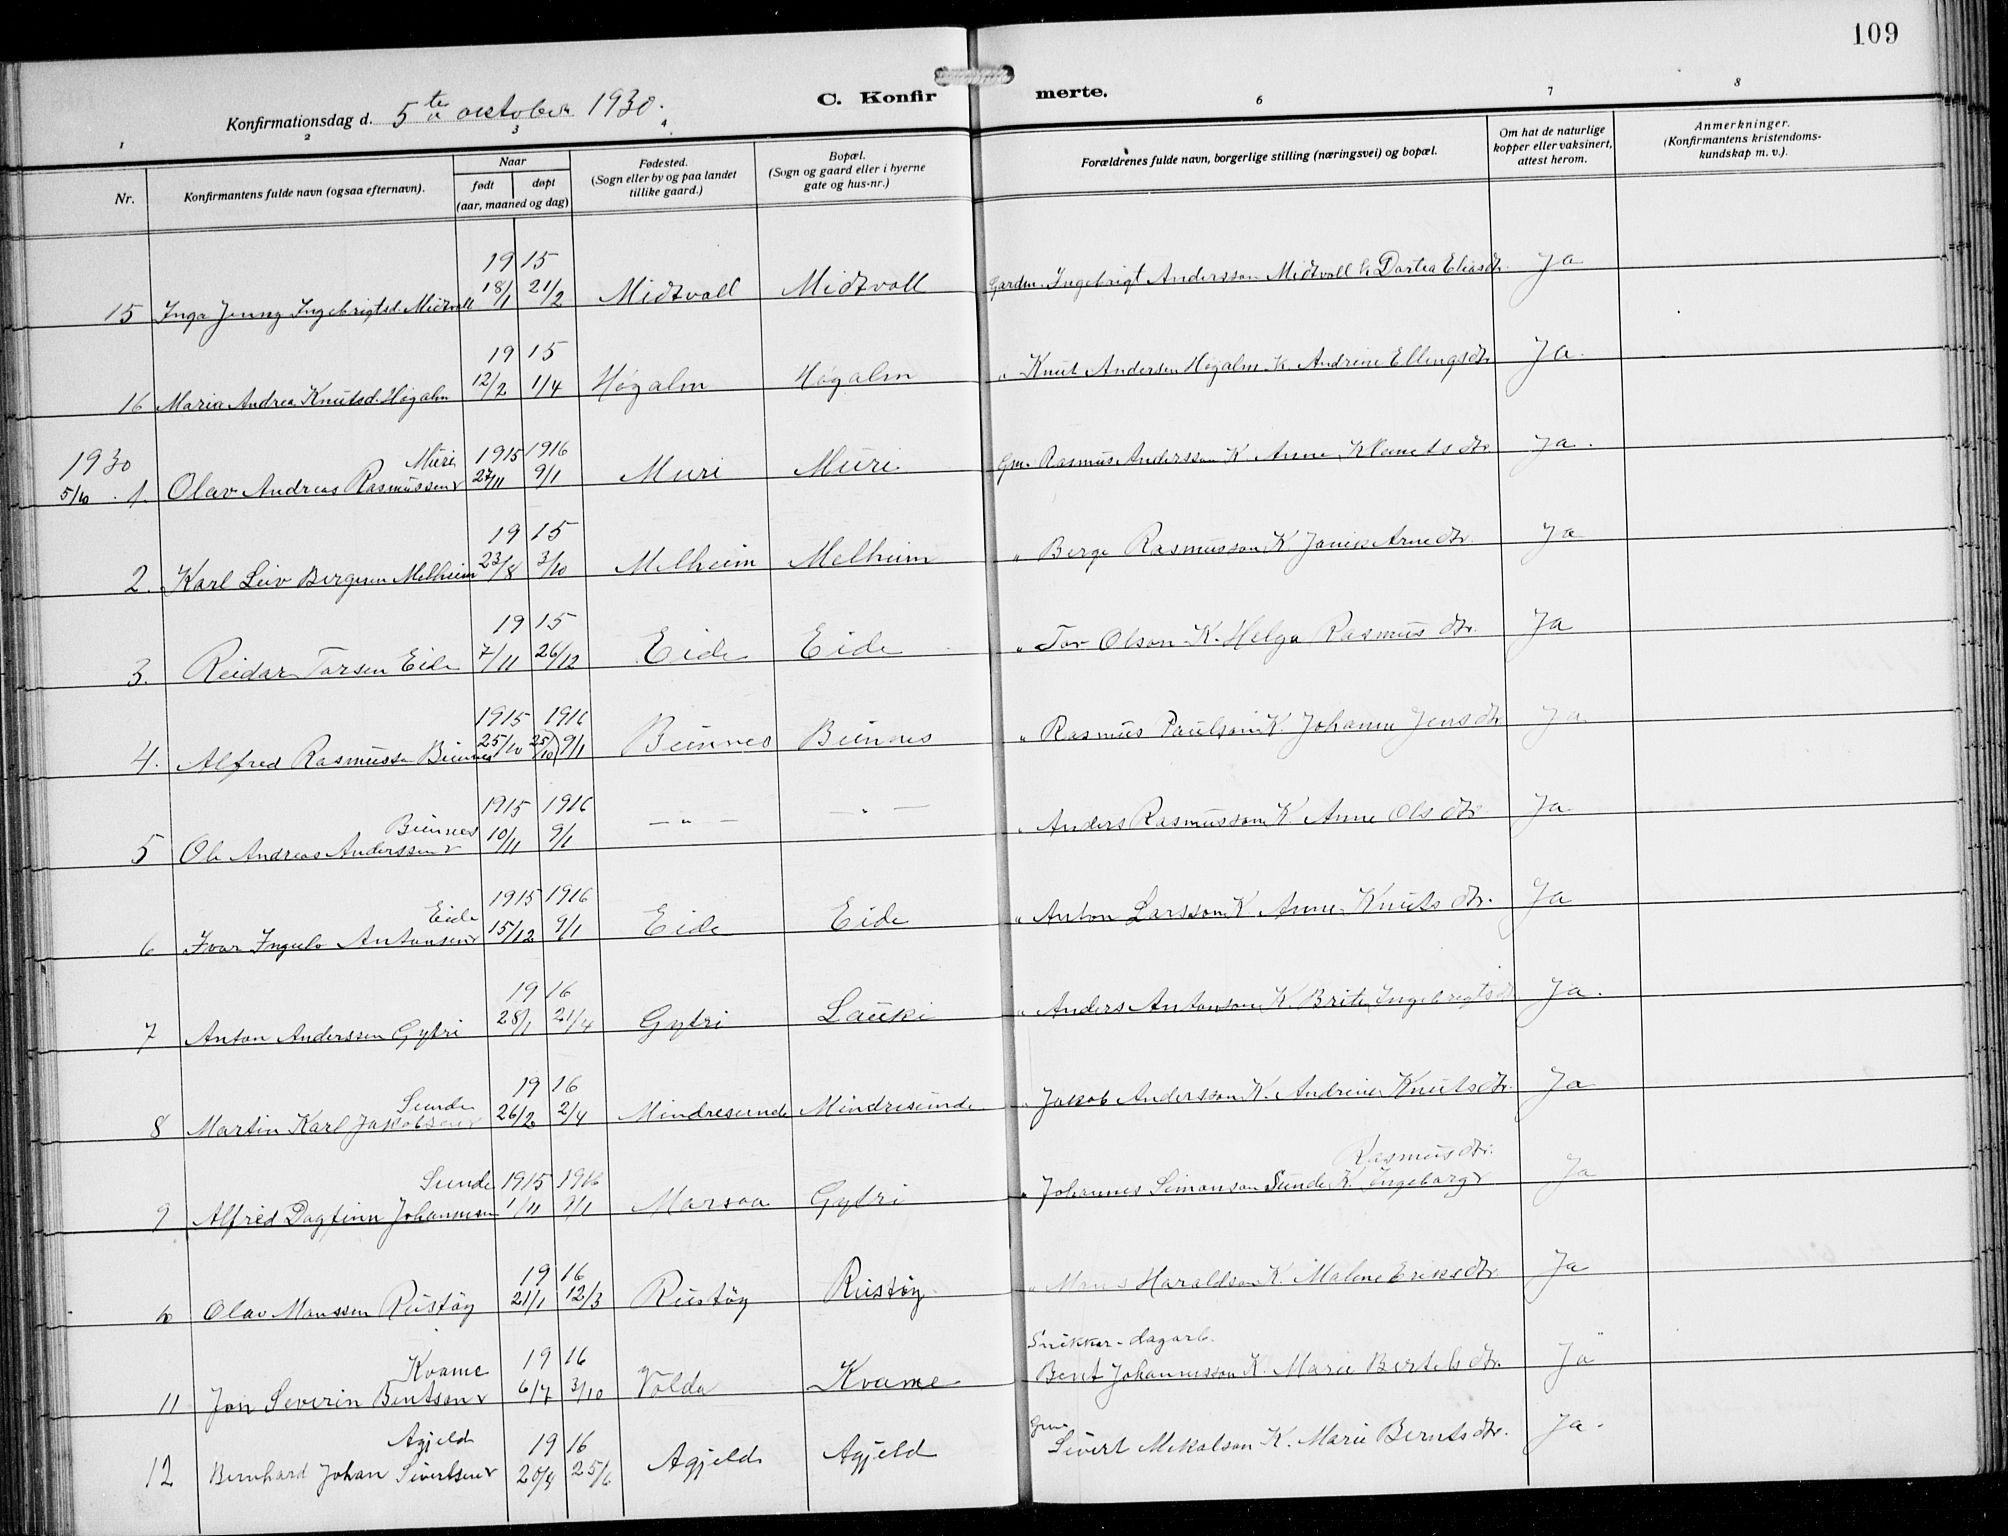 109
C. Konfirmerte.
Konfirmationsdag d. 5te october 1930.
1 2 3 4 6 7 8
Nr.
Konfirmantens fulde navn (ogsaa efternavn).
Naar
født døpt
(aar, maaned og dag)
Fødested.
(Sogn eller by og paa landet
tillike gaard.)
Bopæl.
(Sogn og gaard eller i byerne
gate og hus-nr.)
Forældrenes fulde navn, borgerlige stilling (næringsvei) og bopæl.
Om hat de naturlige
kopper eller vaksinert,
attest herom.
Anmerkninger.
(Konfirmantens kristendoms-
kundskap m. v.).
19 15
15 Inga Jenny Ingebrigtsd. Midtvoll 18/1 21/2 Midtvoll Midtvoll Gardm. Ingebrigt Andersson Midtvoll k Dortea Eliasdtr. Ja
19 15
16 Maria Andrea Knutsd. Høgalm 12/2 1/4 Høgalm Høgalm " Knut Andersen Høgalm K. Andrine Ellingsdtr Ja.
1930 Muri 1915 1916
5/10 1. Olav Andreas Rasmussen 27/11 9/1 Muri Muri Gm. Rasmus Andersson K. Anne Klametsdtr. Ja.
19 15
2. Karl Leiv Bergesen Melheim 23/8 3/10 Melheim Melheim " Berge Rasmusson K. Arnedtr. Ja
19 15
3. Reidar Torsen Eide 7/11 26/12 Eide Eide " Tor Olson K. Helga Rasmusdtr. Ja
1915 1916
4. Alfred Rasmussen Buunes 25/10 25/10) 9/1 Buunes Buunes " Rasmus Paulson K. Johanne Jensdtr Ja
Buunes 1915 1916
5 Ole Andreas Anderssen 10/11 9/1 — " — — " — " Anders Rasmusson K. Anne Olsdtr. Ja
Eide 1915 1916
6 Ivar Antonsen 15/12 9/1 Eide Eide " Anton Larsson K. Anne Knutsdtr. Ja
19 16
7 Anton Anderssen Gytri 28/1 21/4 Gytri Lauki " Anders Antonson K. Brite Ingebrigtsd Ja.
Sunde 19 16
8 Martin Karl Jakobsen 26/2 2/4 Mindresunde Mindresunde " Jakob Andersson K. Andrine Knutsdtr. Ja
Sunde 1915 1916 Rasmusdtr.
9 Alfred Dagfinn Johannesen 1/11 9/1 Marsaa Gytri " Johannes Simonson Sunde K. Ingeborg Ja
19 16
Olav Monssen Rustøy 21/1 12/3 Rustøy Rustøy " Mons Haraldson K. Malene Eriksdtr. Ja
Kvame 19 16 Snikkar-dagarb.
11 Jon Severin Bentson 6/7 3/10 Volda Kvame Bent Johannesson K. Marie Bertelsdtr. Ja
Agjeld 19 16 Gm.
12 Bernhard Johan Sivertsen 20/4 25/6 Agjeld Agjeld Sivert Mikalson K. Marie Berntsdtr. Ja.